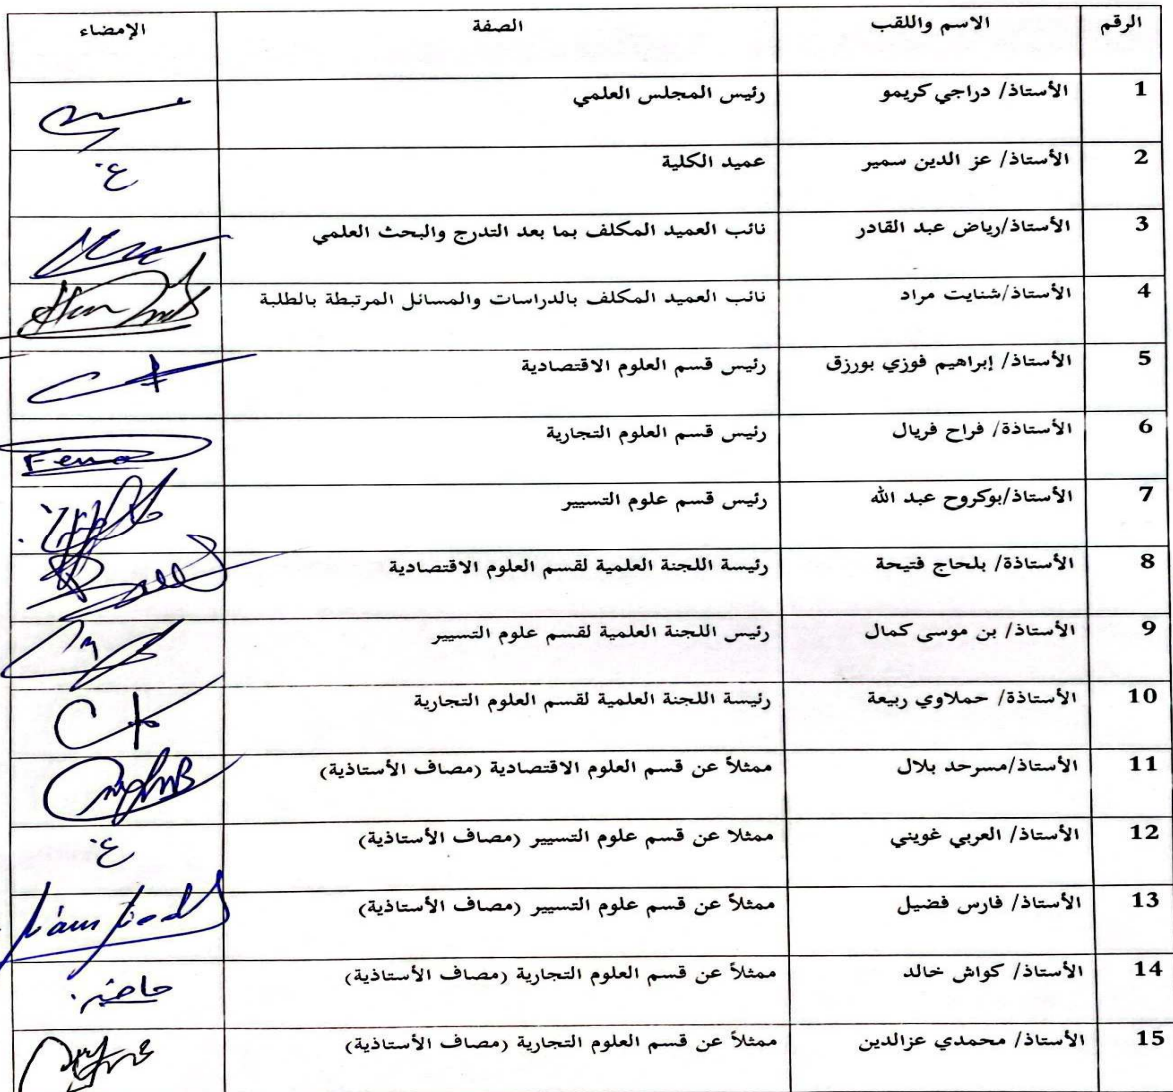 الرقم الاسم واللقب الصفة الإمضاء
1 الأستاذ/ دراجي كريمو رئيس المجلس العلمي
2 الأستاذ/ عز الدين سمير عميد الكلية غ.
3 الأستاذ/رياض عبد القادر نائب العميد المكلف بما بعد التدرج والبحث العلمي
4 الأستاذ/شنايت مراد نائب العميد المكلف بالدراسات والمسائل المرتبطة بالطلبة
5 الأستاذ/ إبراهيم فوزي بورزق رئيس قسم العلوم الاقتصادية
6 الأستاذة/ فراح فريال رئيس قسم العلوم التجارية
7 الأستاذ/بوكروح عبد الله رئيس قسم علوم التسيير
8 الأستاذة/ بلحاج فتيحة رئيسة اللجنة العلمية لقسم العلوم الاقتصادية
9 الأستاذ/ بن موسى كمال رئيس اللجنة العلمية لقسم علوم التسيير
10 الأستاذة/ حملاوي ربيعة رئيسة اللجنة العلمية لقسم العلوم التجارية
11 الأستاذ/مسرحد بلال ممثلاً عن قسم العلوم الاقتصادية (مصاف الأستاذية)
12 الأستاذ/ العربي غويني ممثلا عن قسم علوم التسيير (مصاف الأستاذية) غ.
13 الأستاذ/ فارس فضيل ممثلاً عن قسم علوم التسيير (مصاف الأستاذية)
14 الأستاذ/ كواش خالد ممثلاً عن قسم العلوم التجارية (مصاف الأستاذية) حاضر.
15 الأستاذ/ محمدي عزالدين ممثلاً عن قسم العلوم التجارية (مصاف الأستاذية)